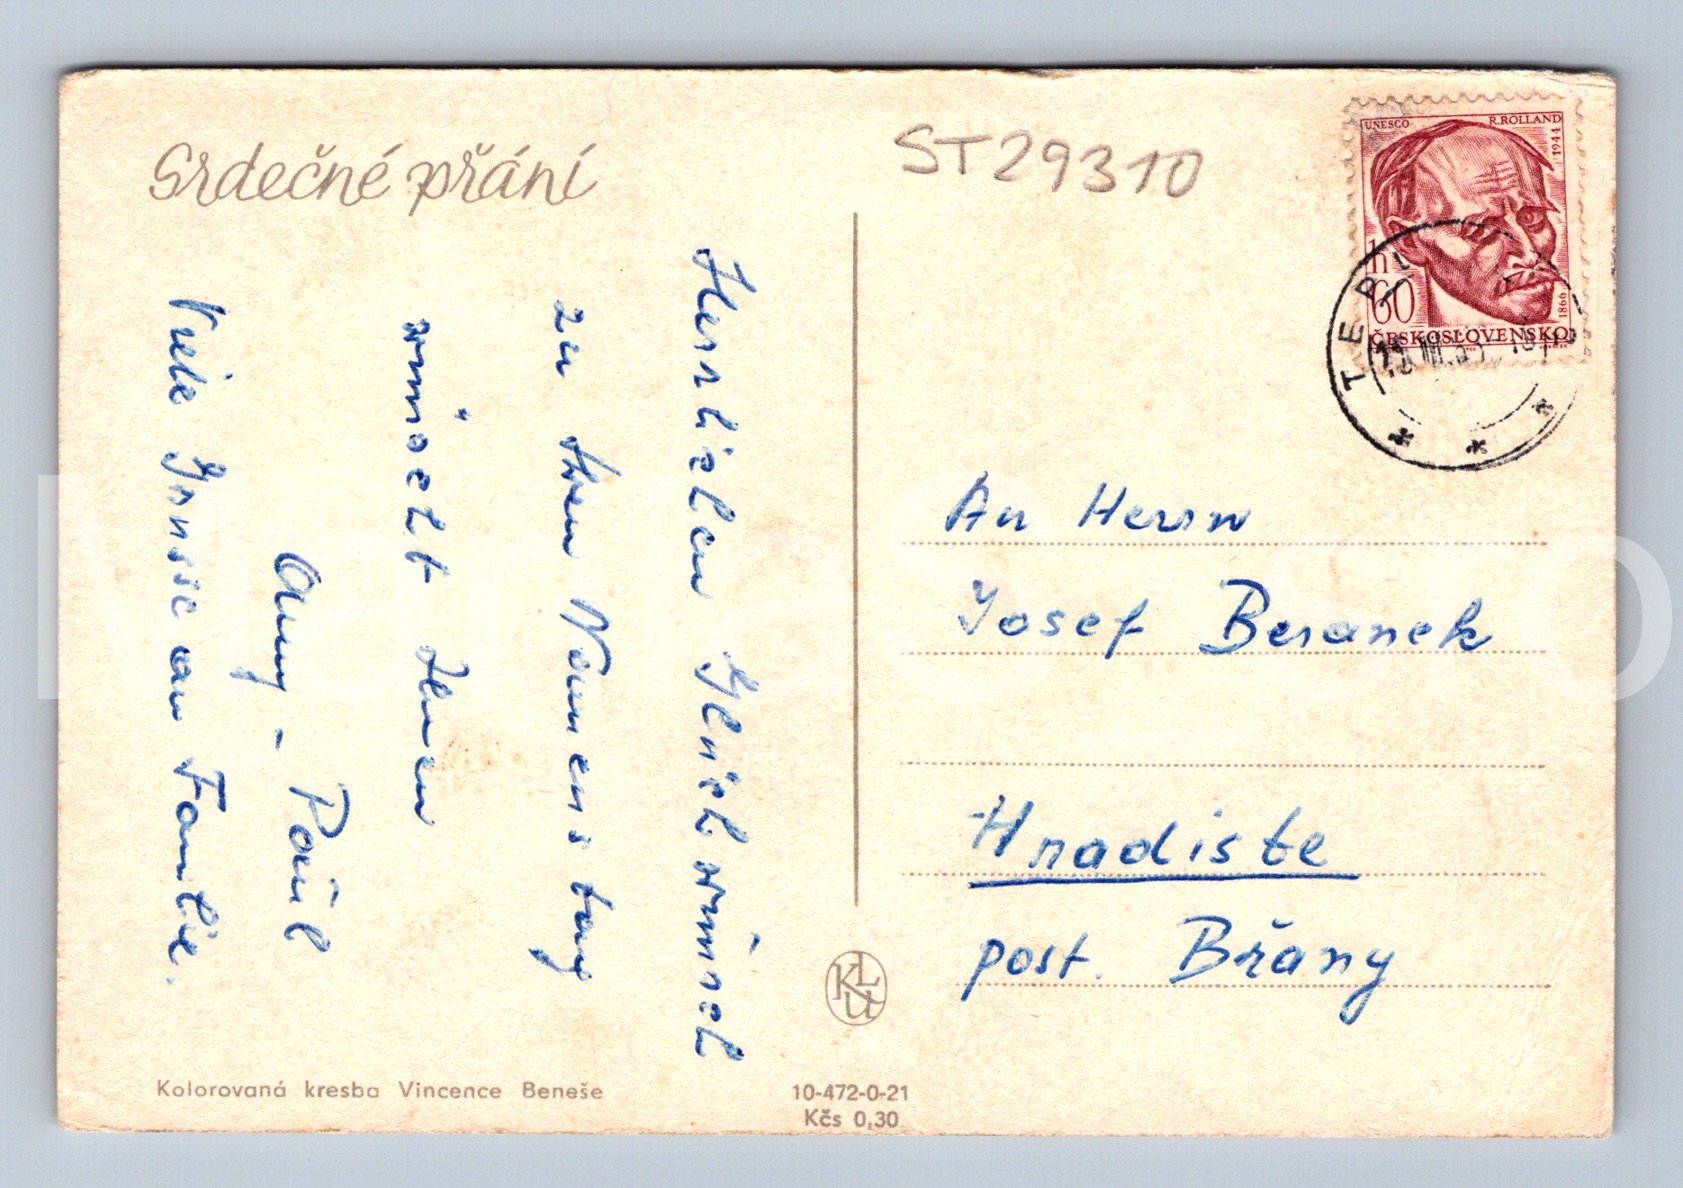 Srdečné přání
ST29310
UNESCO R.ROLLAND
1944
1866
h
60
ČESKOSLOVENSKO
TEPL
Herzlichen Glückwünsch
zu Ihren Namenstag
wünscht Ihnen
Anny - Paul
Viele Grüsse an Familie.
An Herrn
Josef Beranek
Hradiste
post. Břany
KLU
Kolorovaná kresba Vincence Beneše
10-472-0-21
Kčs 0,30